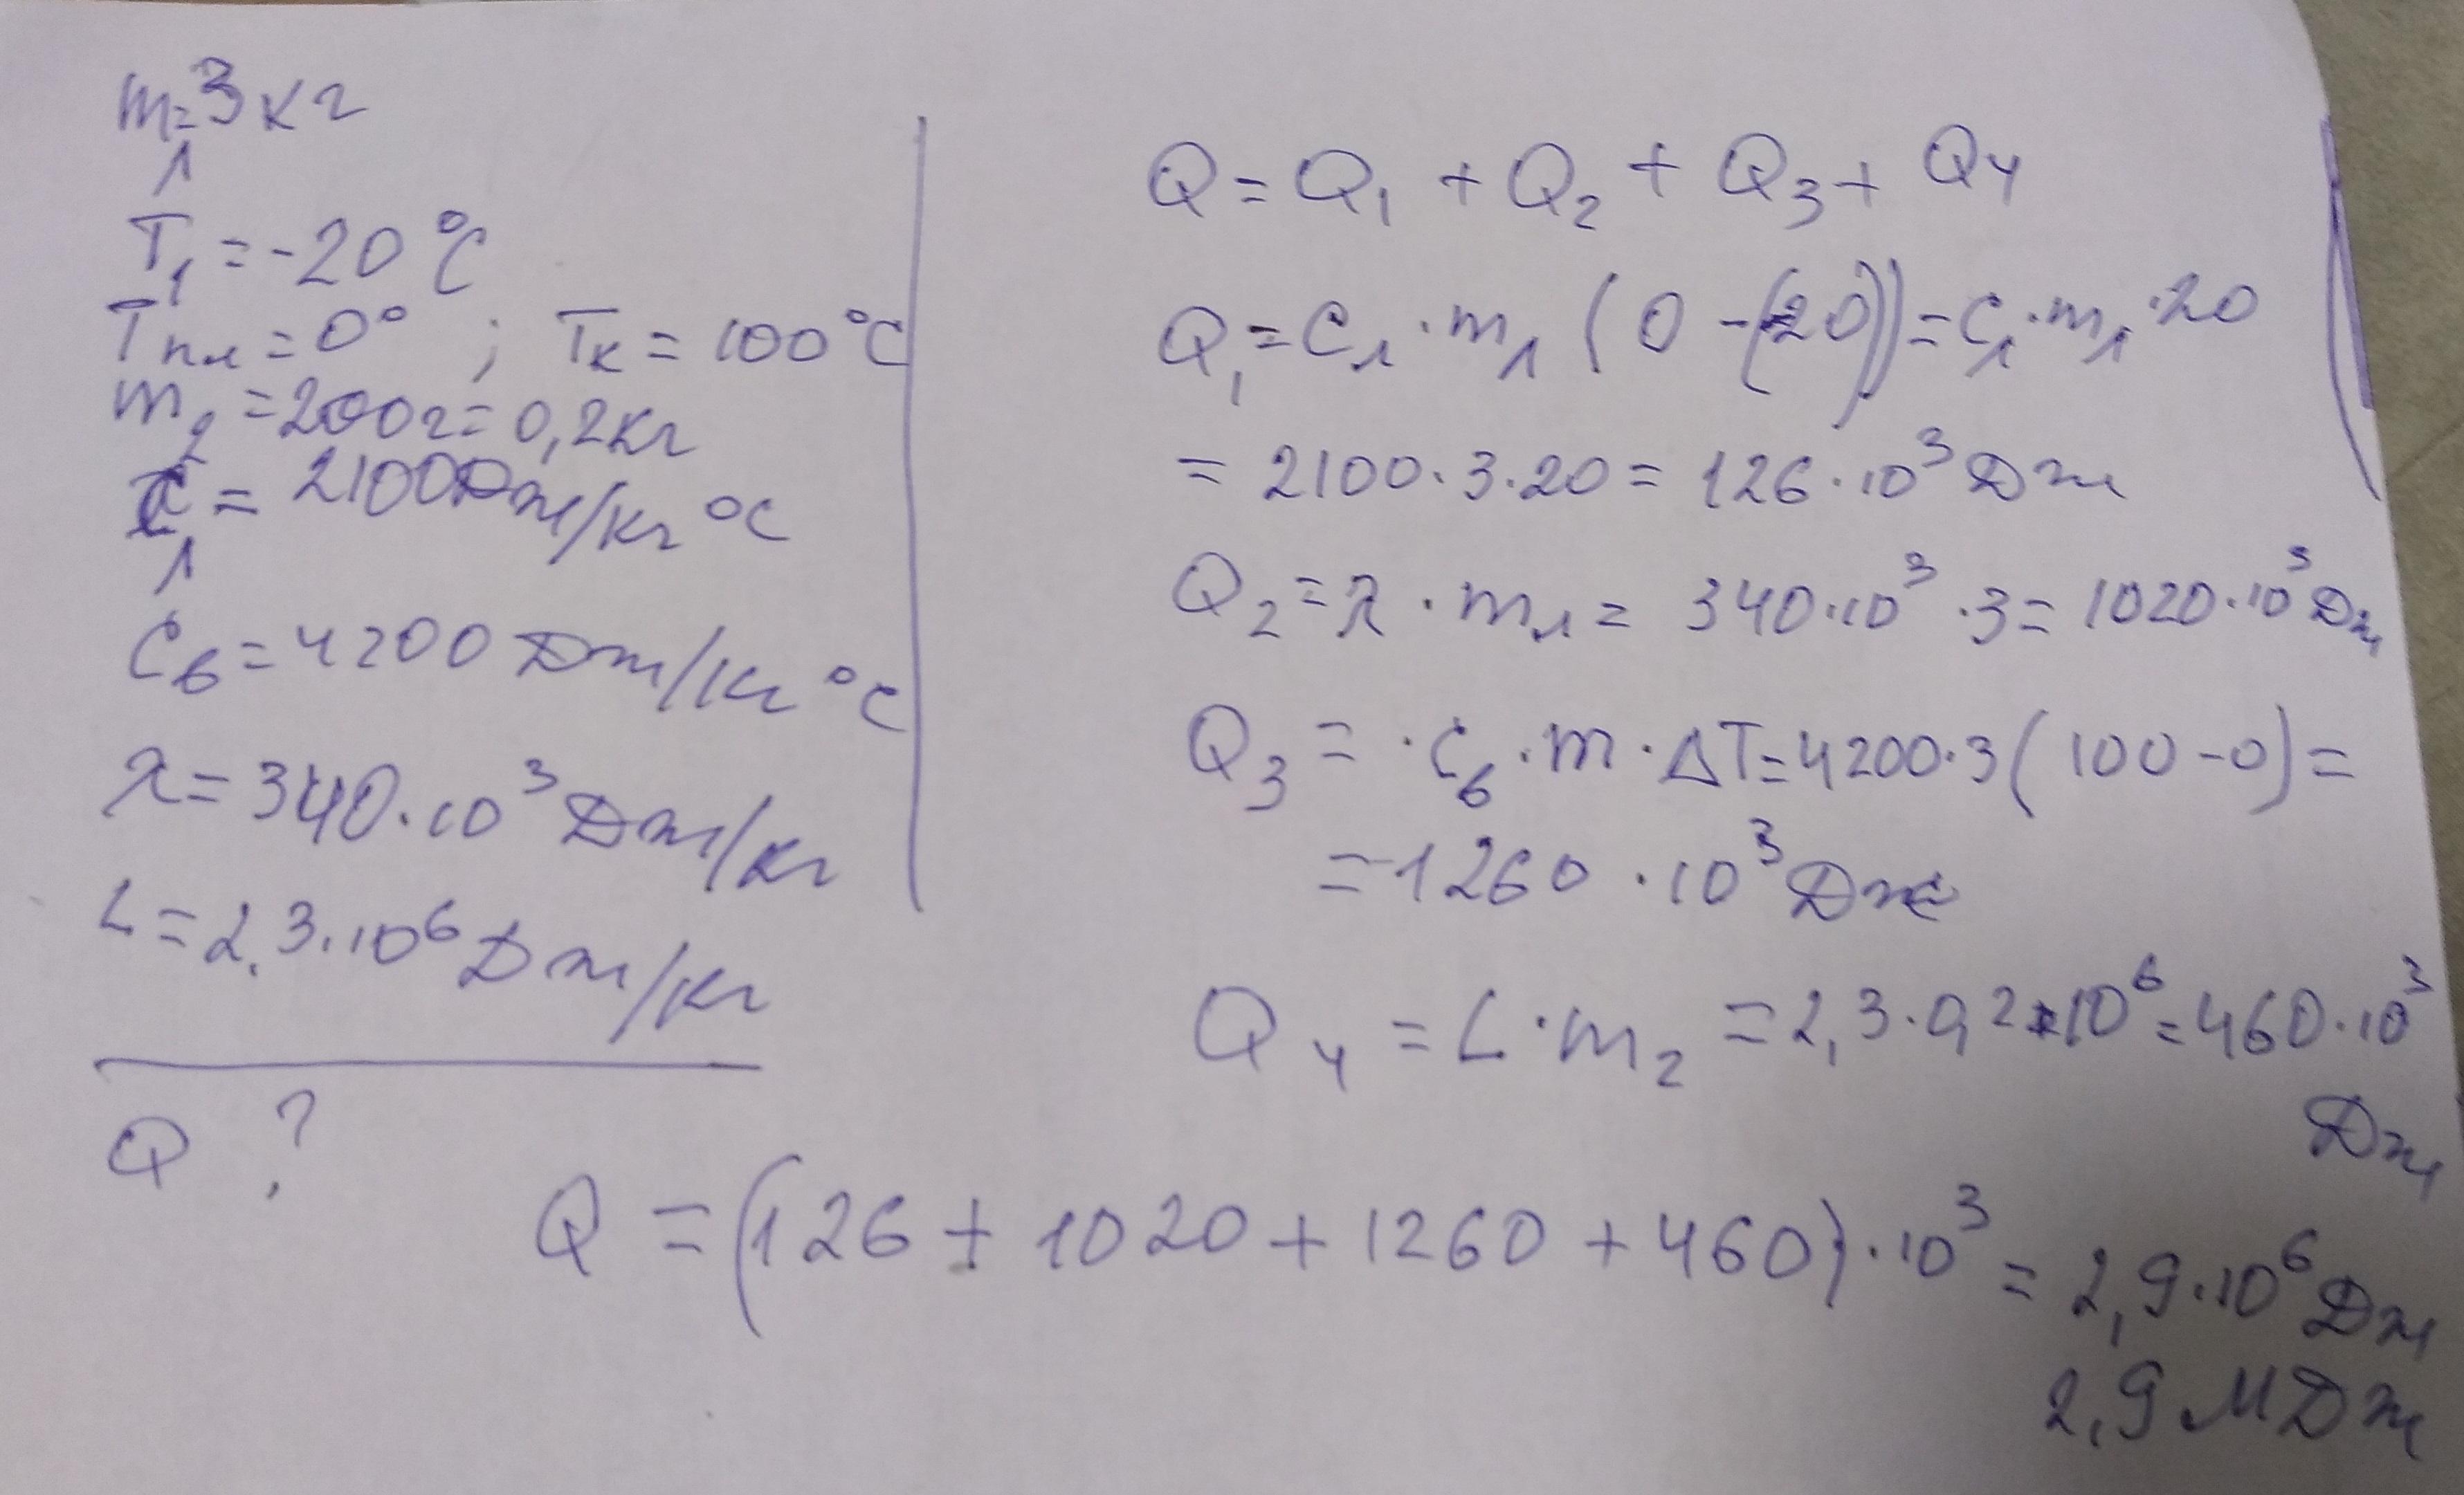 m л = 3 кг
T₁ = -20 °C
Tпл = 0° ; Tк = 100 °C
m₂ = 200г = 0,2кг
Cл = 2100Дж/кг °C
Cв = 4200 Дж/кг °C
λ = 340·10³ Дж/кг
L = 2,3·10⁶ Дж/кг
Q ?
Q = Q₁ + Q₂ + Q₃ + Q₄
Q₁ = Cл · mл (0 - (-20)) = Cл · mл · 20
= 2100·3·20 = 126·10³ Дж
Q₂ = λ · mл = 340·10³ ·3 = 1020·10³ Дж
Q₃ = · Cв · m · ΔT = 4200·3 (100 - 0) =
= 1260 · 10³ Дж
Q₄ = L · m₂ = 2,3·0,2·10⁶ = 460·10³
Дж
Q = (126 + 1020 + 1260 + 460)·10³ = 2,9·10⁶ Дж
2,9 МДж